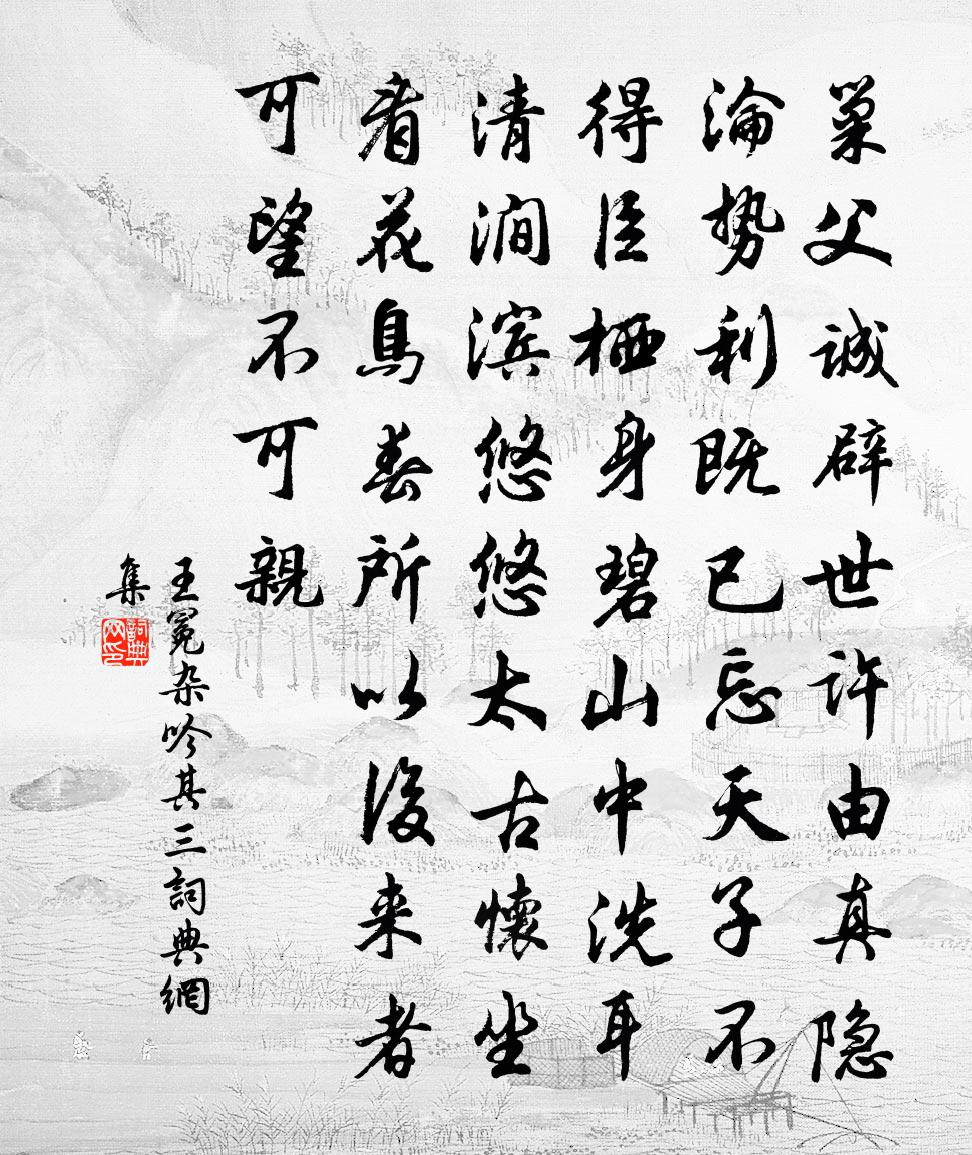 巢父诚辟世许由真隐
淪势利既已忘天子不
得臣栖身碧山中洗耳
清涧滨悠悠太古懷坐
看花鳥春所以後来者
可望不可親
王冕杂吟其三詞典網
集
詞典网印